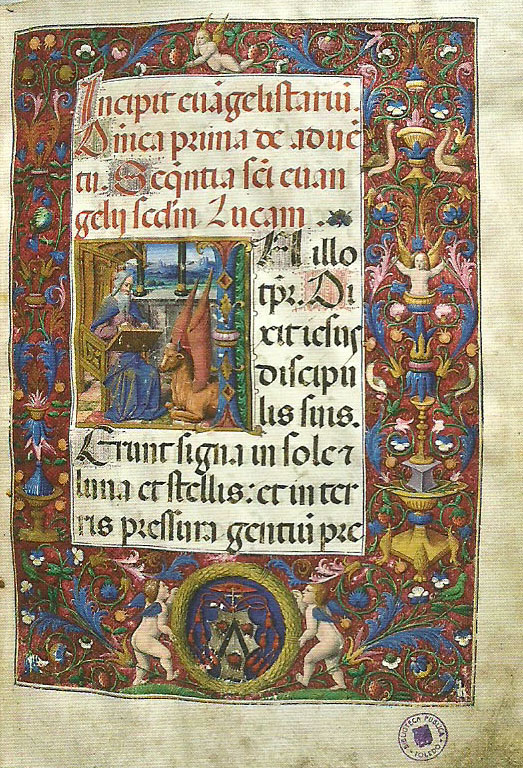 Incipit euāgelistariū.
Dn̄ica prima de aduē
tu. Seqn̄tia sc̄i euan
gelij scd̄m Lucam.
IN illo
tp̄r. Di
xit iesus
discipu
lis suis.
Erunt signa in sole ⁊
luna et stellis: et in ter
ris pressura gentiū pre
BIBLIOTECA PUBLICA
TOLEDO